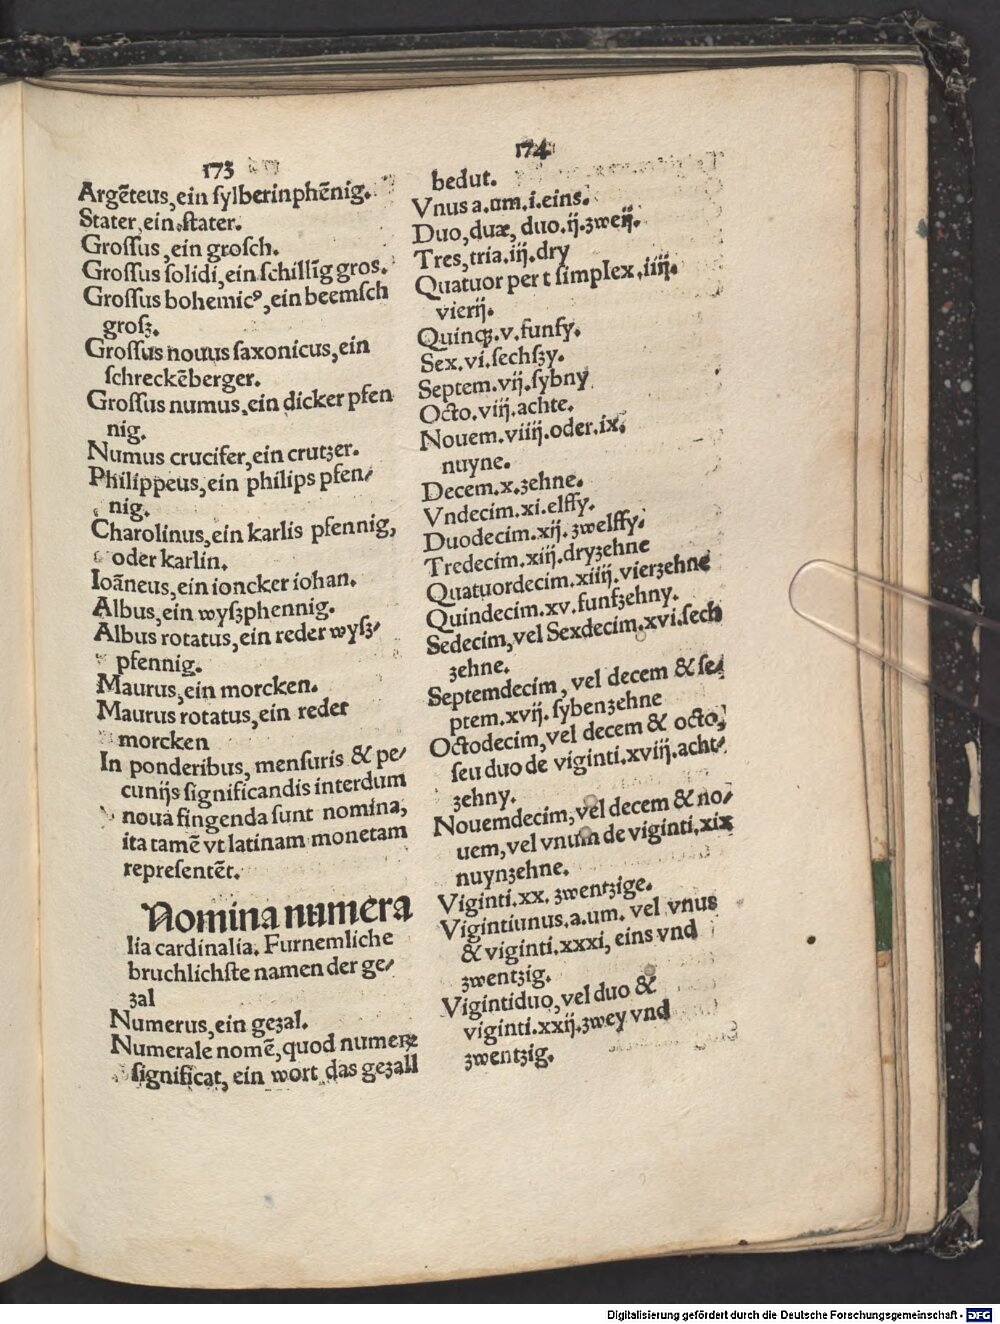 173
Argēteus, ein sylberinphēnig.
Stater, ein stater.
Grossus, ein grosch.
Grossus solidi, ein schillīg gros.
Grossus bohemicꝰ, ein beemsch
grosz.
Grossus nouus saxonicus, ein
schreckēberger.
Grossus numus, ein dicker pfen
nig.
Numus crucifer, ein crutzer.
Philippeus, ein philips pfen/
nig.
Charolinus, ein karlis pfennig,
oder karlin.
Ioāneus, ein ioncker iohan.
Albus, ein wyszphennig.
Albus rotatus, ein reder wysz/
pfennig.
Maurus, ein morcken.
Maurus rotatus, ein reder
morcken
In ponderibus, mensuris & pe/
cunijs significandis interdum
noua fingenda sunt nomina,
ita tamē vt latinam monetam
representēt.
Nomina numera
lia cardinalia. Furnemliche
bruchlichste namen der ge/
zal
Numerus, ein gezal.
Numerale nomē, quod numerū
significat, ein wort das gezall
174
bedut.
Vnus a.um.i.eins.
Duo, duæ, duo.ij.zweij.
Tres, tria.iij.dry
Quatuor per t simplex.iiij.
vierij.
Quinqꝫ.v.funfy.
Sex.vi.sechszy.
Septem.vij.sybny
Octo.viij.achte.
Nouem.viiij.oder.ix.
nuyne.
Decem.x.zehne.
Vndecim.xi.elffy.
Duodecim.xij.zwelffy.
Tredecim.xiij.dryzehne
Quatuordecim.xiiij.vierzehne
Quindecim.xv.funfzehny.
Sedecim, vel Sexdecim.xvi.sech
zehne.
Septemdecim, vel decem & se/
ptem.xvij.sybenzehne
Octodecim, vel decem & octo,
seu duo de viginti.xviij.acht/
zehny.
Nouemdecim, vel decem & no/
uem, vel vnum de viginti.xix
nuynzehne.
Viginti.xx.zwentzige.
Vigintiunus.a.um. vel vnus
& viginti.xxxi, eins vnd
zwentzig.
Vigintiduo, vel duo &
viginti.xxij.zwey vnd
zwentzig.
Digitalisierung gefördert durch die Deutsche Forschungsgemeinschaft - DFG